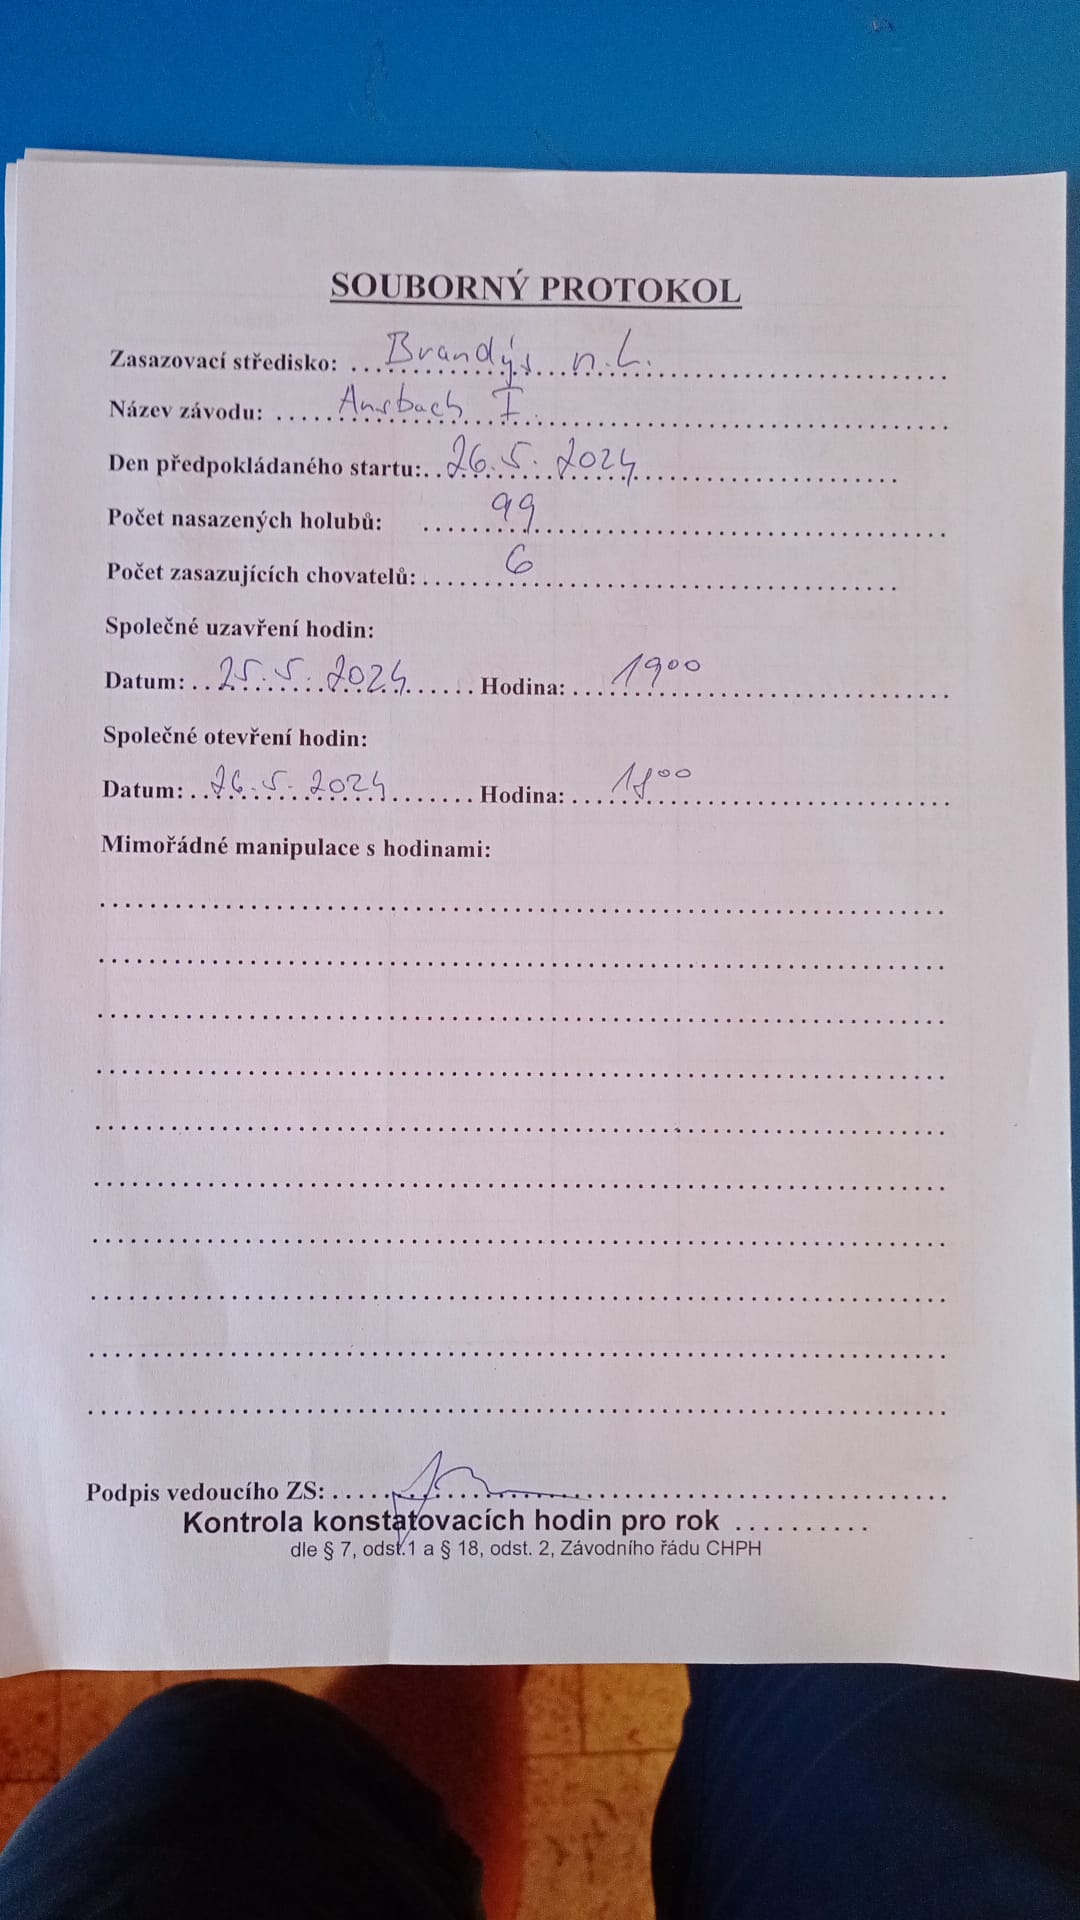 SOUBORNÝ PROTOKOL
Zasazovací středisko: Brandýs n.L.
Název závodu: Ansbach I.
Den předpokládaného startu: 26.5.2024
Počet nasazených holubů: 99
Počet zasazujících chovatelů: 6
Společné uzavření hodin:
Datum: 25.5.2024 Hodina: 19⁰⁰
Společné otevření hodin:
Datum: 26.5.2024 Hodina: 18⁰⁰
Mimořádné manipulace s hodinami:
Podpis vedoucího ZS:
Kontrola konstatovacích hodin pro rok ..........
dle § 7, odst.1 a § 18, odst. 2, Závodního řádu CHPH